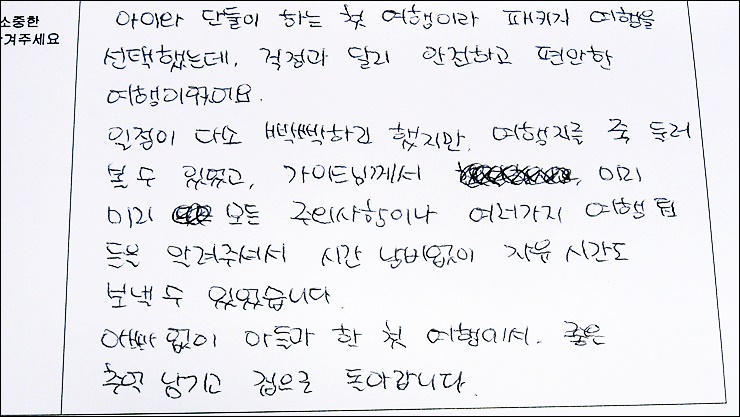 소중한
겨주세요
아이와 단둘이 하는 첫 여행이라 패키지 여행을
선택했는데, 걱정과 달리 안전하고 편안한
여행이었어요.
일정이 다소 빡빡하긴 했지만, 여행지를 죽 둘러
볼 수 있었고, 가이드님께서 미리
미리 모든 주의사항이나 여러가지 여행 팁
들을 알려주셔서 시간 낭비없이 자유 시간도
보낼 수 있었습니다.
아빠 없이 아들과 한 첫 여행에서. 좋은
추억 남기고 집으로 돌아갑니다.